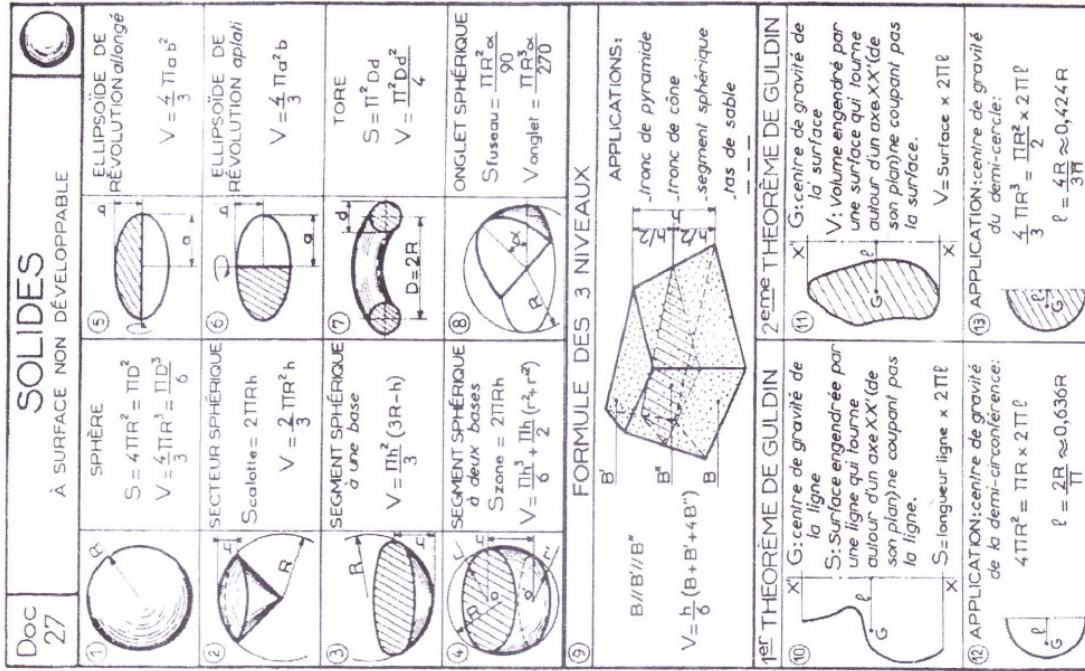 Doc
27
SOLIDES
À SURFACE NON DÉVELOPPABLE
①
SPHÈRE
S = 4ΠR² = ΠD²
V = 4/3 ΠR³ = ΠD³/6
R
②
SECTEUR SPHÉRIQUE
Scalotte = 2ΠRh
V = 2/3 ΠR²h
h
R
③
SEGMENT SPHÉRIQUE
à une base
V = Πh²/3 (3R-h)
R
h
④
SEGMENT SPHÉRIQUE
à deux bases
Szone = 2ΠRh
V = Πh³/6 + Πh/2 (r²+r'²)
⑤
ELLIPSOÏDE DE
RÉVOLUTION allongé
V = 4/3 Πab²
b
a
⑥
ELLIPSOÏDE DE
RÉVOLUTION aplati
V = 4/3 Πa²b
b
a
⑦
TORE
S = Π²Dd
V = Π²Dd²/4
d
D=2R
⑧
ONGLET SPHÉRIQUE
Sfuseau = ΠR²α/90
Vonglet = ΠR³α/270
R
α
⑨
FORMULE DES 3 NIVEAUX
B//B'//B"
V = h/6 (B+B'+4B")
B'
B"
B
h/2
h/2
h
APPLICATIONS:
-tronc de pyramide
-tronc de cône
-segment sphérique
-tas de sable
- - -
1er THEORÈME DE GULDIN
⑩
X'
G
ℓ
X
G:centre de gravité de
la ligne
S: Surface engendrée par
une ligne qui tourne
autour d'un axe XX' (de
son plan) ne coupant pas
la ligne.
S=longueur ligne x 2Πℓ
2ème THEORÈME DE GULDIN
⑪
X'
G
ℓ
X
G:centre de gravité de
la surface
V: volume engendré par
une surface qui tourne
autour d'un axe XX' (de
son plan) ne coupant pas
la surface.
V=Surface x 2Πℓ
⑫ APPLICATION:centre de gravité
de la demi-circonférence:
4ΠR² = ΠR x 2Πℓ
ℓ = 2R/Π ≈ 0,636R
G
ℓ
⑬ APPLICATION:centre de gravité
du demi-cercle:
4/3 ΠR³ = ΠR²/2 x 2Πℓ
ℓ = 4R/3Π ≈ 0,424R
G
ℓ